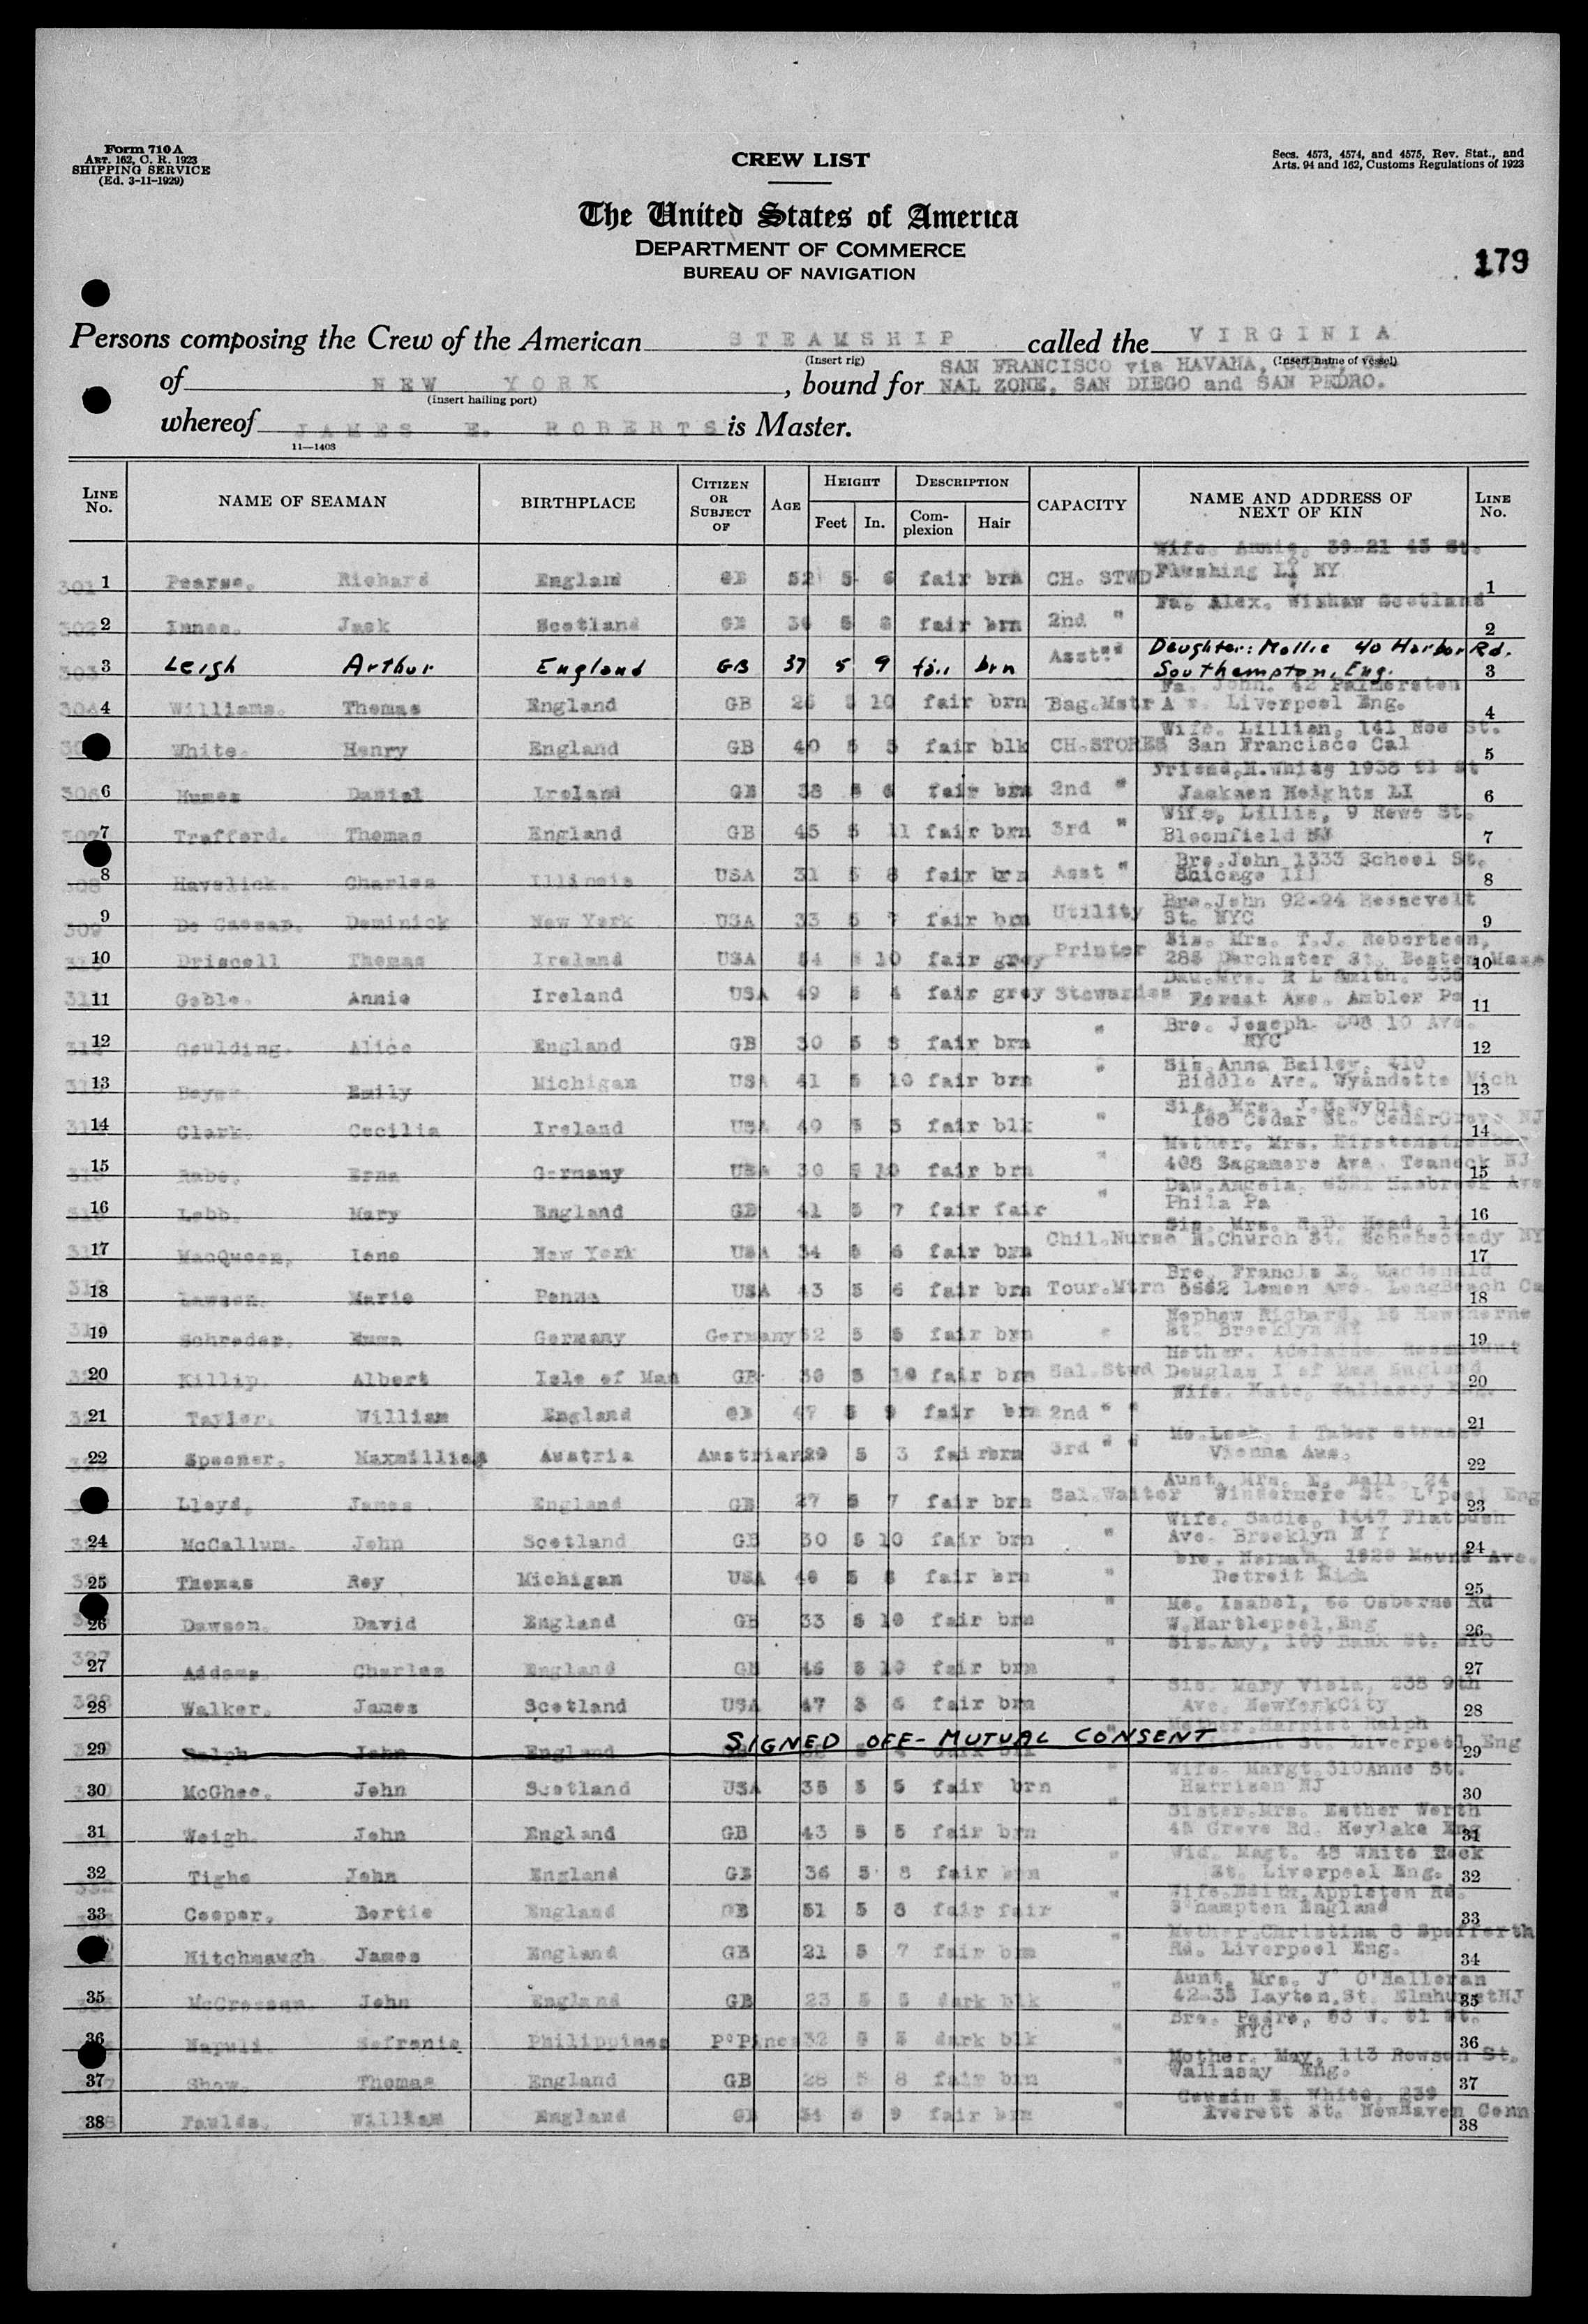 Form 710 A
ART. 162, C. R. 1923
SHIPPING SERVICE
(Ed. 3-11-1929)
CREW LIST
Secs. 4573, 4574, and 4575, Rev. Stat., and
Arts. 94 and 162, Customs Regulations of 1923
The United States of America
DEPARTMENT OF COMMERCE
BUREAU OF NAVIGATION
179
Persons composing the Crew of the American STEAMSHIP called the VIRGINIA
(Insert rig) (Insert name of vessel)
of NEW YORK, bound for SAN FRANCISCO via HAVANA, CUBA, CA-
NAL ZONE, SAN DIEGO and SAN PEDRO.
(Insert hailing port)
whereof JAMES E. ROBERTS is Master.
11—1408
LINE No. NAME OF SEAMAN BIRTHPLACE CITIZEN OR SUBJECT OF AGE HEIGHT Feet In. DESCRIPTION Complexion Hair CAPACITY NAME AND ADDRESS OF NEXT OF KIN LINE No.
Wife. Annie, 39-21 45 St.
301 1 Pearse. Richard England GB 52 5 6 fair brn CH. STWD Flushing LI NY 1
Fa. Alex. Wishaw Scotland
302 2 Innes. Jack Scotland GB 36 5 8 fair brn 2nd " 2
Daughter: Mollie 40 Harbor Rd.
303 3 Leigh Arthur England GB 37 5 9 fair brn Asst. " Southampton, Eng. 3
Fa. John. 42 Palmerston
304 4 Williams. Thomas England GB 26 5 10 fair brn Bag.Mstr Av. Liverpool Eng. 4
Wife. Lillian, 141 Noe St.
White. Henry England GB 40 5 5 fair blk CH.STORES San Francisco Cal 5
Friend, H. White 1938 81 St
306 6 Humes Daniel Ireland GB 38 5 6 fair brn 2nd " Jackson Heights LI 6
Wife, Lillie, 9 Rowe St.
307 7 Trafford. Thomas England GB 45 5 11 fair brn 3rd " Bloomfield NJ 7
Bro. John 1333 School St.
308 8 Havelick. Charles Illinois USA 31 5 8 fair brn Asst " Chicago Ill 8
Bro. John 92-94 Roosevelt
309 9 De Caesar. Dominick New York USA 33 5 7 fair brn Utility St. NYC 9
Sis. Mrs. T.J. Robertson,
310 10 Driscoll Thomas Ireland USA 54 5 10 fair grey Printer 285 Dorchster St. Boston Mass 10
Dau. Mrs. R L Smith. 336
311 11 Goble. Annie Ireland USA 49 5 4 fair grey Stewardess Forest Ave. Ambler Pa 11
Bro. Joseph. 10 Ave.
312 12 Goulding. Alice England GB 30 5 8 fair brn " NYC 12
Sis Anna Bailey, 410
313 13 Emily Michigan USA 41 5 10 fair brn " Biddle Ave. Wyandotte Mich 13
Sis. Mrs. J.
314 14 Clark. Cecilia Ireland USA 40 5 5 fair blk " 168 Cedar St. CedarGrove NJ 14
Mother. Mrs.
315 15 Rabe. Erna Germany USA 30 5 10 fair brn " 408 Sagamore Ave. Teaneck NJ 15
Dau. Angela. Ave
316 16 Lobb. Mary England GB 41 5 7 fair fair " Phila Pa 16
Sis. Mrs. H.D. Head. 14
317 17 MacQueen. Ione New York USA 34 5 6 fair brn Chil.Nurse N.Church St. Schenectady NY 17
Bro. Francis E. Macdonald
318 18 Lawson. Marie Penna USA 43 5 6 fair brn Tour.Mtrn 5662 Lemon Ave. LongBeach Ca 18
Nephew Richard, 15 Hawthorne
319 19 Schroder. Emma Germany Germany 52 5 5 fair brn " St. Brooklyn NY 19
Mother. Adelaide.
320 20 Killip. Albert Isle of Man GB 36 5 10 fair brn Sal.Stwd Douglas I of Man England 20
Wife. Kate, Wallasey Eng.
321 21 Tayler. William England GB 47 5 9 fair brn 2nd " " 21
Mo. 1 Taber Strasse
322 22 Spooner. Maxmillian Austria Austrian 29 5 3 fair brn 3rd " " Vienna Aus. 22
Aunt. Mrs. E. Ball. 24
Lloyd. James England GB 27 5 7 fair brn Sal.Waiter Windermere St. L'pool Eng 23
Wife. Sadie, 1447 Flatbush
24 McCallum. John Scotland GB 30 5 10 fair brn " Ave. Brooklyn N Y 24
bro. Norman, 1629 Mound Ave.
325 25 Thomas Roy Michigan USA 46 5 8 fair brn " Detroit Mich 25
Mo. Isabel, 66 Osborne Rd
26 Dawson. David England GB 33 5 10 fair brn " W.Hartlepool, Eng 26
Sis. Amy, 109 Bank St. NYC
327 27 Addams. Charles England GB 46 5 10 fair brn " 27
Sis. Mary Viola, 238 9th
328 28 Walker. James Scotland USA 47 5 6 fair brn " Ave. NewYorkCity 28
Mother. Harriet Ralph
29 Ralph John England SIGNED OFF - MUTUAL CONSENT St. Liverpool Eng 29
Wife. Margt. 310 Anne St.
30 McGhee. John Scotland USA 35 5 5 fair brn " Harrison NJ 30
Sister. Mrs. Esther Worth
31 Weigh. John England GB 43 5 5 fair brn " 45 Grove Rd. Hoylake Eng 31
Wid. Magt. 48 White Rock
32 Tighe John England GB 36 5 8 fair brn " St. Liverpool Eng. 32
Wife. Edith. Appleton Rd.
33 Cooper. Bertie England GB 51 5 8 fair fair " S'hampton England 33
Mother. Christina 8 Spofforth
Hitchmaugh James England GB 21 5 7 fair brn " Rd. Liverpool Eng. 34
Aunt. Mrs. J O'Halloran
335 35 McCrossan. John England GB 23 5 5 dark blk " 42-35 Layton, St. Elmhurst NJ 35
Bro. Pedro, 63 W. 61 St.
36 Napuli. Sofronio Philippines P.Pines 32 5 5 dark blk " NYC 36
Mother. May, 113 Rowson St.
37 Shaw. Thomas England GB 28 5 8 fair brn " Wallasay Eng. 37
Cousin E. White, 239
338 38 Faulds. William England GB 34 5 9 fair brn " Everett St. NewHaven Conn 38